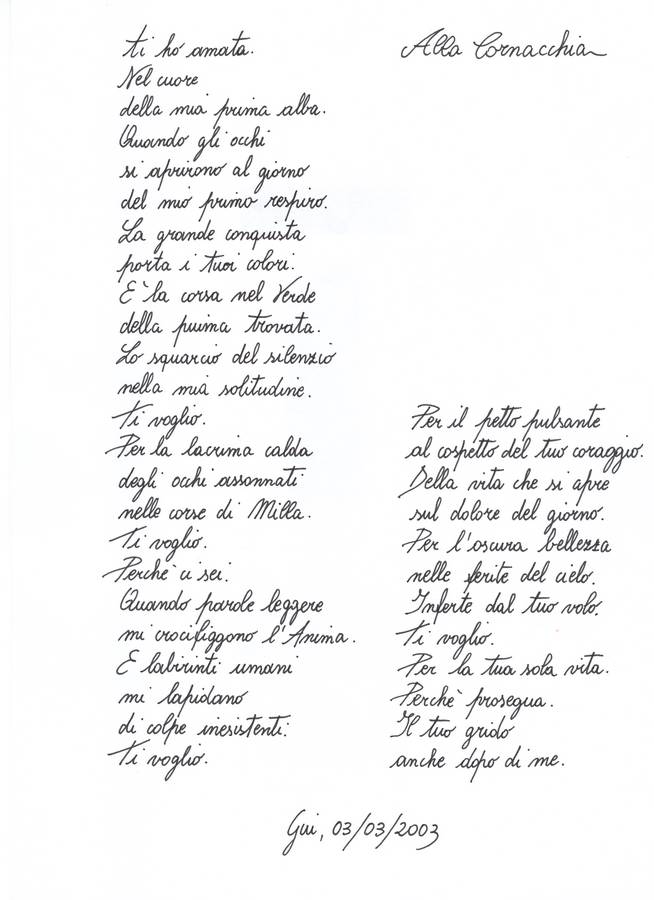 Alla Cornacchia
ti ho amata.
Nel cuore
della mia prima alba.
Quando gli occhi
si aprirono al giorno
del mio primo respiro.
La grande conquista
porta i tuoi colori.
E' la corsa nel Verde
della piuma trovata.
Lo squarcio del silenzio
nella mia solitudine.
Ti voglio.
Per la lacrima calda
degli occhi assonnati
nelle corse di Milla.
Ti voglio.
Perchè ci sei.
Quando parole leggere
mi crocifiggono l'Anima.
E labirinti umani
mi lapidano
di colpe inesistenti.
Ti voglio.
Per il petto pulsante
al cospetto del tuo coraggio.
Della vita che si apre
sul dolore del giorno.
Per l'oscura bellezza
nelle ferite del cielo.
Inferte dal tuo volo.
Ti voglio.
Per la tua sola vita.
Perchè prosegua.
Il tuo grido
anche dopo di me.
Gui, 03/03/2003